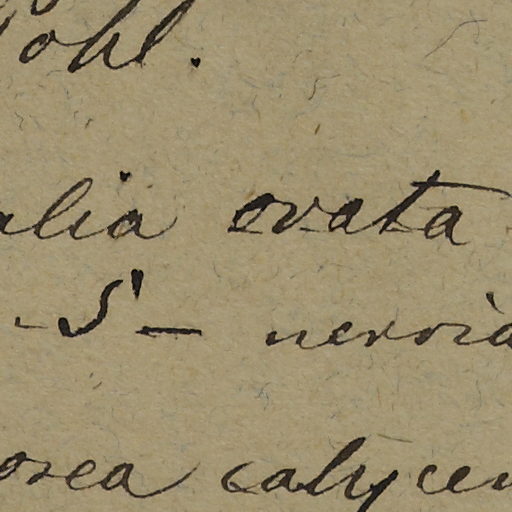 Pohl.
alia ovata
-5- nervia
osea calycem